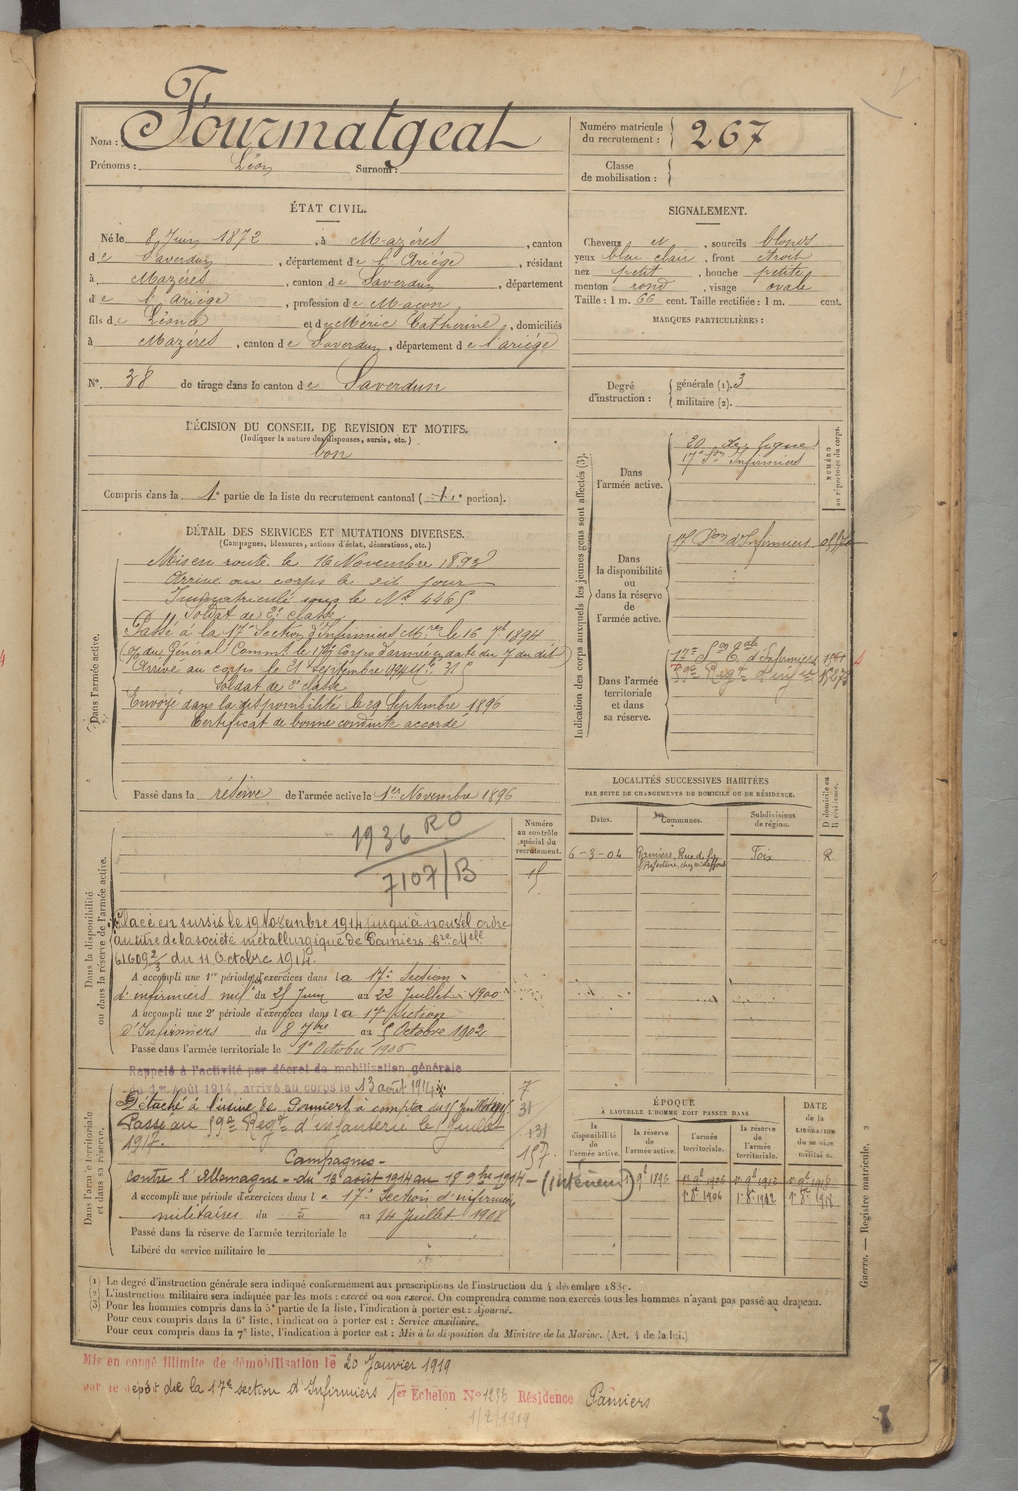 Nom : Fourmatgeat
Prénoms : Léon Surnom :
Numéro matricule du recrutement : 267
Classe de mobilisation :
ÉTAT CIVIL.
Né le 8 Juin 1872, à Mazéres, canton
de Saverdun, département de l'Ariége, résidant
à Mazéres, canton de Saverdun, département
de l'ariége, profession de Maçon
fils de Léon et de Méric Catherine, domiciliés
à Mazéres, canton de Saverdun, département de l'ariége
N° 38 de tirage dans le canton de Saverdun
SIGNALEMENT.
Cheveux et, sourcils blonds
yeux bleu clair, front étroit
nez petit, bouche petite
menton rond, visage ovale
Taille : 1 m. 66 cent. Taille rectifiée : 1 m. cent.
MARQUES PARTICULIÈRES :
Degré d'instruction : générale (1). 3
militaire (2).
DÉCISION DU CONSEIL DE REVISION ET MOTIFS.
(Indiquer la nature des dispenses, sursis, etc.)
bon
Compris dans la 1e partie de la liste du recrutement cantonal ( portion).
DÉTAIL DES SERVICES ET MUTATIONS DIVERSES.
(Campagnes, blessures, actions d'éclat, décorations, etc.)
Dans l'armée active.
Mis en route le 16 Novembre 1893
Arrivé au corps le dit jour
Immatriculé sous le N° 4465
Soldat de 2e classe
Passé à la 17e Section d'Infirmiers Mres le 16 7bre 1894
(On du Général Commt le 17e Corps d'armée en date du 7 du dit)
Arrivé au corps le 21 Septembre 1894
Soldat de 2e classe
Envoyé dans la disponibilité le 29 Septembre 1896
Certificat de bonne conduite accordé
Passé dans la réserve de l'armée active le 1er Novembre 1896
Indication des corps auxquels les jeunes gens sont affectés (3).
NUMÉRO au répertoire du corps.
Dans l'armée active.
20 de ligne
17e Son Infirmiers
Dans la disponibilité ou dans la réserve de l'armée active.
17 Son d'Infirmiers
Dans l'armée territoriale et dans sa réserve.
17e Son d'Infirmiers
59e Regt d'Infie
LOCALITÉS SUCCESSIVES HABITÉES
PAR SUITE DE CHANGEMENTS DE DOMICILE OU DE RÉSIDENCE.
Dates. Communes. Subdivisions de région. D domicile ou R résidence.
6-3-04 Pamiers, Rue de la Préfecture, chez Foix R
Dans la disponibilité ou dans la réserve de l'armée active.
Numéro au contrôle spécial du recrutement.
15
1936 RO
7107/B
Placé en sursis le 19 Novembre 1914 jusqu'à nouvel ordre
au titre de la société métallurgique de Pamiers
61609 2/3 du 11 Octobre 1914.
A accompli une 1re période d'exercices dans la 17e Section
d'infirmiers du 25 Juin au 22 Juillet 1900
A accompli une 2e période d'exercices dans la 17 section
d'Infirmiers du 8 7bre au 5 Octobre 1902
Passé dans l'armée territoriale le 1er Octobre 1906
Dans l'armée territoriale et dans sa réserve.
Rappelé à l'activité par décret de mobilisation générale
du 1er Août 1914, arrivé au corps le 13 août 1914
Détaché à l'usine de Pamiers à compter du 15 Juillet
Passé au 59e Regt d'infanterie le Juillet
1917.
Campagnes -
contre l'Allemagne - du 13 août 1914 au 18 9bre 1914 - (intérieur)
A accompli une période d'exercices dans la 17e Section d'infirmiers
militaires du 5 au 14 Juillet 1908
Passé dans la réserve de l'armée territoriale le
Libéré du service militaire le
7
31
+31
157
ÉPOQUE
À LAQUELLE L'HOMME DOIT PASSER DANS
la disponibilité de l'armée active. la réserve de l'armée active. l'armée territoriale. la réserve de l'armée territoriale.
DATE de la LIBÉRATION du service militaire.
1 9b 1896 1er 9b 1906 1er 9b 1912 1er 9b 1918
1er 8b 1906 1er 8b 1912 1er 8b 1918
Guerre. — Registre matricule. 2
(1) Le degré d'instruction générale sera indiqué conformément aux prescriptions de l'instruction du 4 décembre 1889.
(2) L'instruction militaire sera indiquée par les mots : exercé ou non exercé. On comprendra comme non exercés tous les hommes n'ayant pas passé au drapeau.
(3) Pour les hommes compris dans la 5e partie de la liste, l'indication à porter est : Ajourné.
Pour ceux compris dans la 6e liste, l'indication à porter est : Service auxiliaire.
Pour ceux compris dans la 7e liste, l'indication à porter est : Mis à la disposition du Ministre de la Marine. (Art. 4 de la loi.)
Mis en congé illimité de démobilisation le 20 Janvier 1919
par le dépôt de la 17e section d'Infirmiers 1er Echelon N° 1233 Résidence Pamiers
1/2/1919